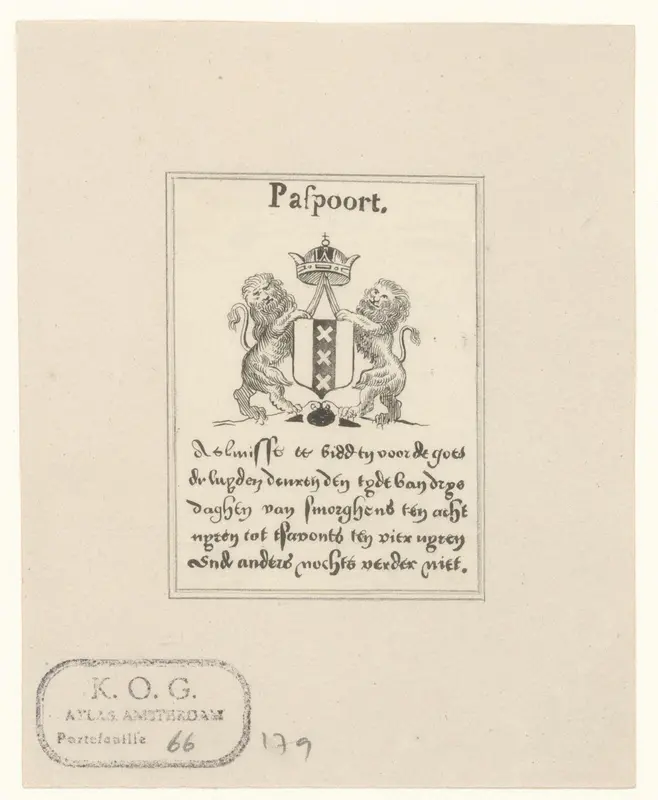 Paſpoort.
Aelmisse te bidden voor de goets
dr luyden deuren den tydt van drye
daghen van smorghens ten acht
uyren tot tsavonts ten vier uyren
Ende anders nochte verder niet.
K. O. G.
ATLAS AMSTERDAM
Portefeuille 66
179